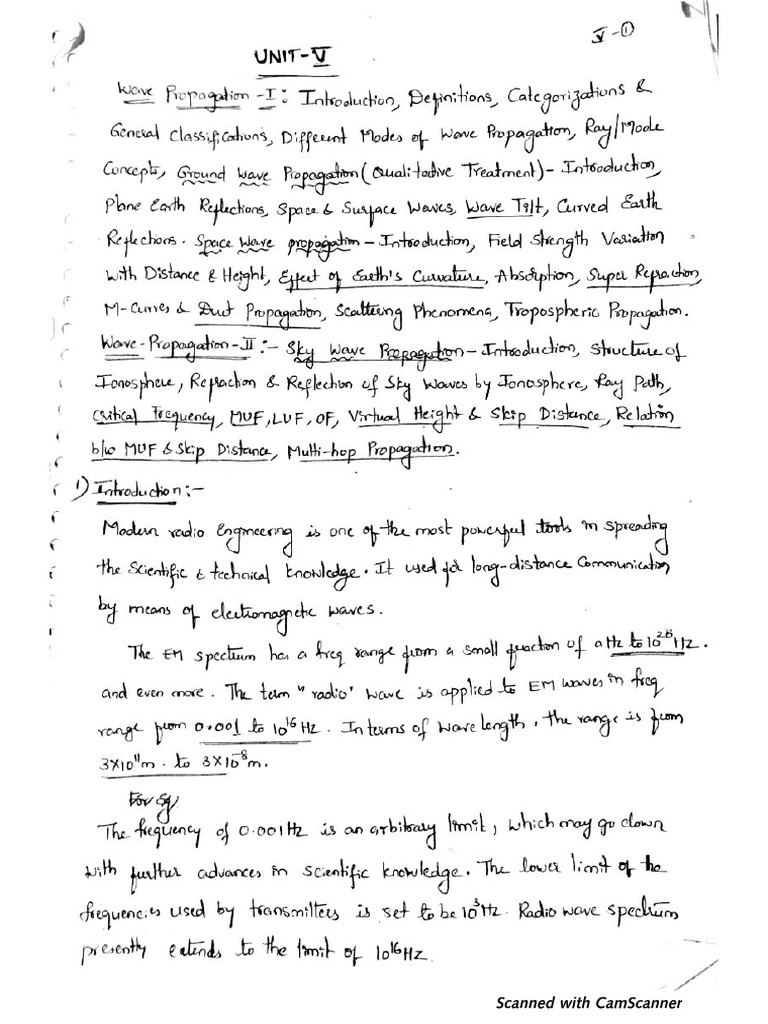 V-①
UNIT-V
Wave Propagation-I: Introduction, Definitions, Categorizations &
General Classifications, Different Modes of Wave Propagation, Ray/Mode
Concepts, Ground Wave Propagation (Qualitative Treatment) - Introduction,
Plane Earth Reflections, Space & Surface Waves, Wave Tilt, Curved Earth
Reflections. Space Wave propagation - Introduction, Field Strength Variation
with Distance & Height, Effect of Earth's Curvature, Absorption, Super Refraction,
M-Curves & Duct Propagation, Scattering Phenomena, Tropospheric Propagation.
Wave-Propagation-II:- Sky Wave Propagation - Introduction, Structure of
Ionosphere, Refraction & Reflection of Sky Waves by Ionosphere, Ray Path,
Critical Frequency, MUF, LUF, OF, Virtual Height & Skip Distance, Relation
b/w MUF & Skip Distance, Multi-hop Propagation.
1) Introduction:-
Modern radio Engineering is one of the most powerful tools in spreading
the Scientific & technical knowledge. It used for long-distance Communication
by means of electromagnetic waves.
The EM spectrum has a freq range from a small fraction of a Hz to 10²⁶ Hz.
and even more. The term "radio" wave is applied to EM waves in freq
range from 0.001 to 10¹⁶ Hz. In terms of wave length, the range is from
3×10¹¹m. to 3×10⁻⁸m.
For eg
The frequency of 0.001Hz is an arbitrary limit, which may go down
with further advances in scientific knowledge. The lower limit of the
frequencies used by transmitters is set to be 10³Hz. Radio wave spectrum
presently extends to the limit of 10¹⁶Hz.
Scanned with CamScanner